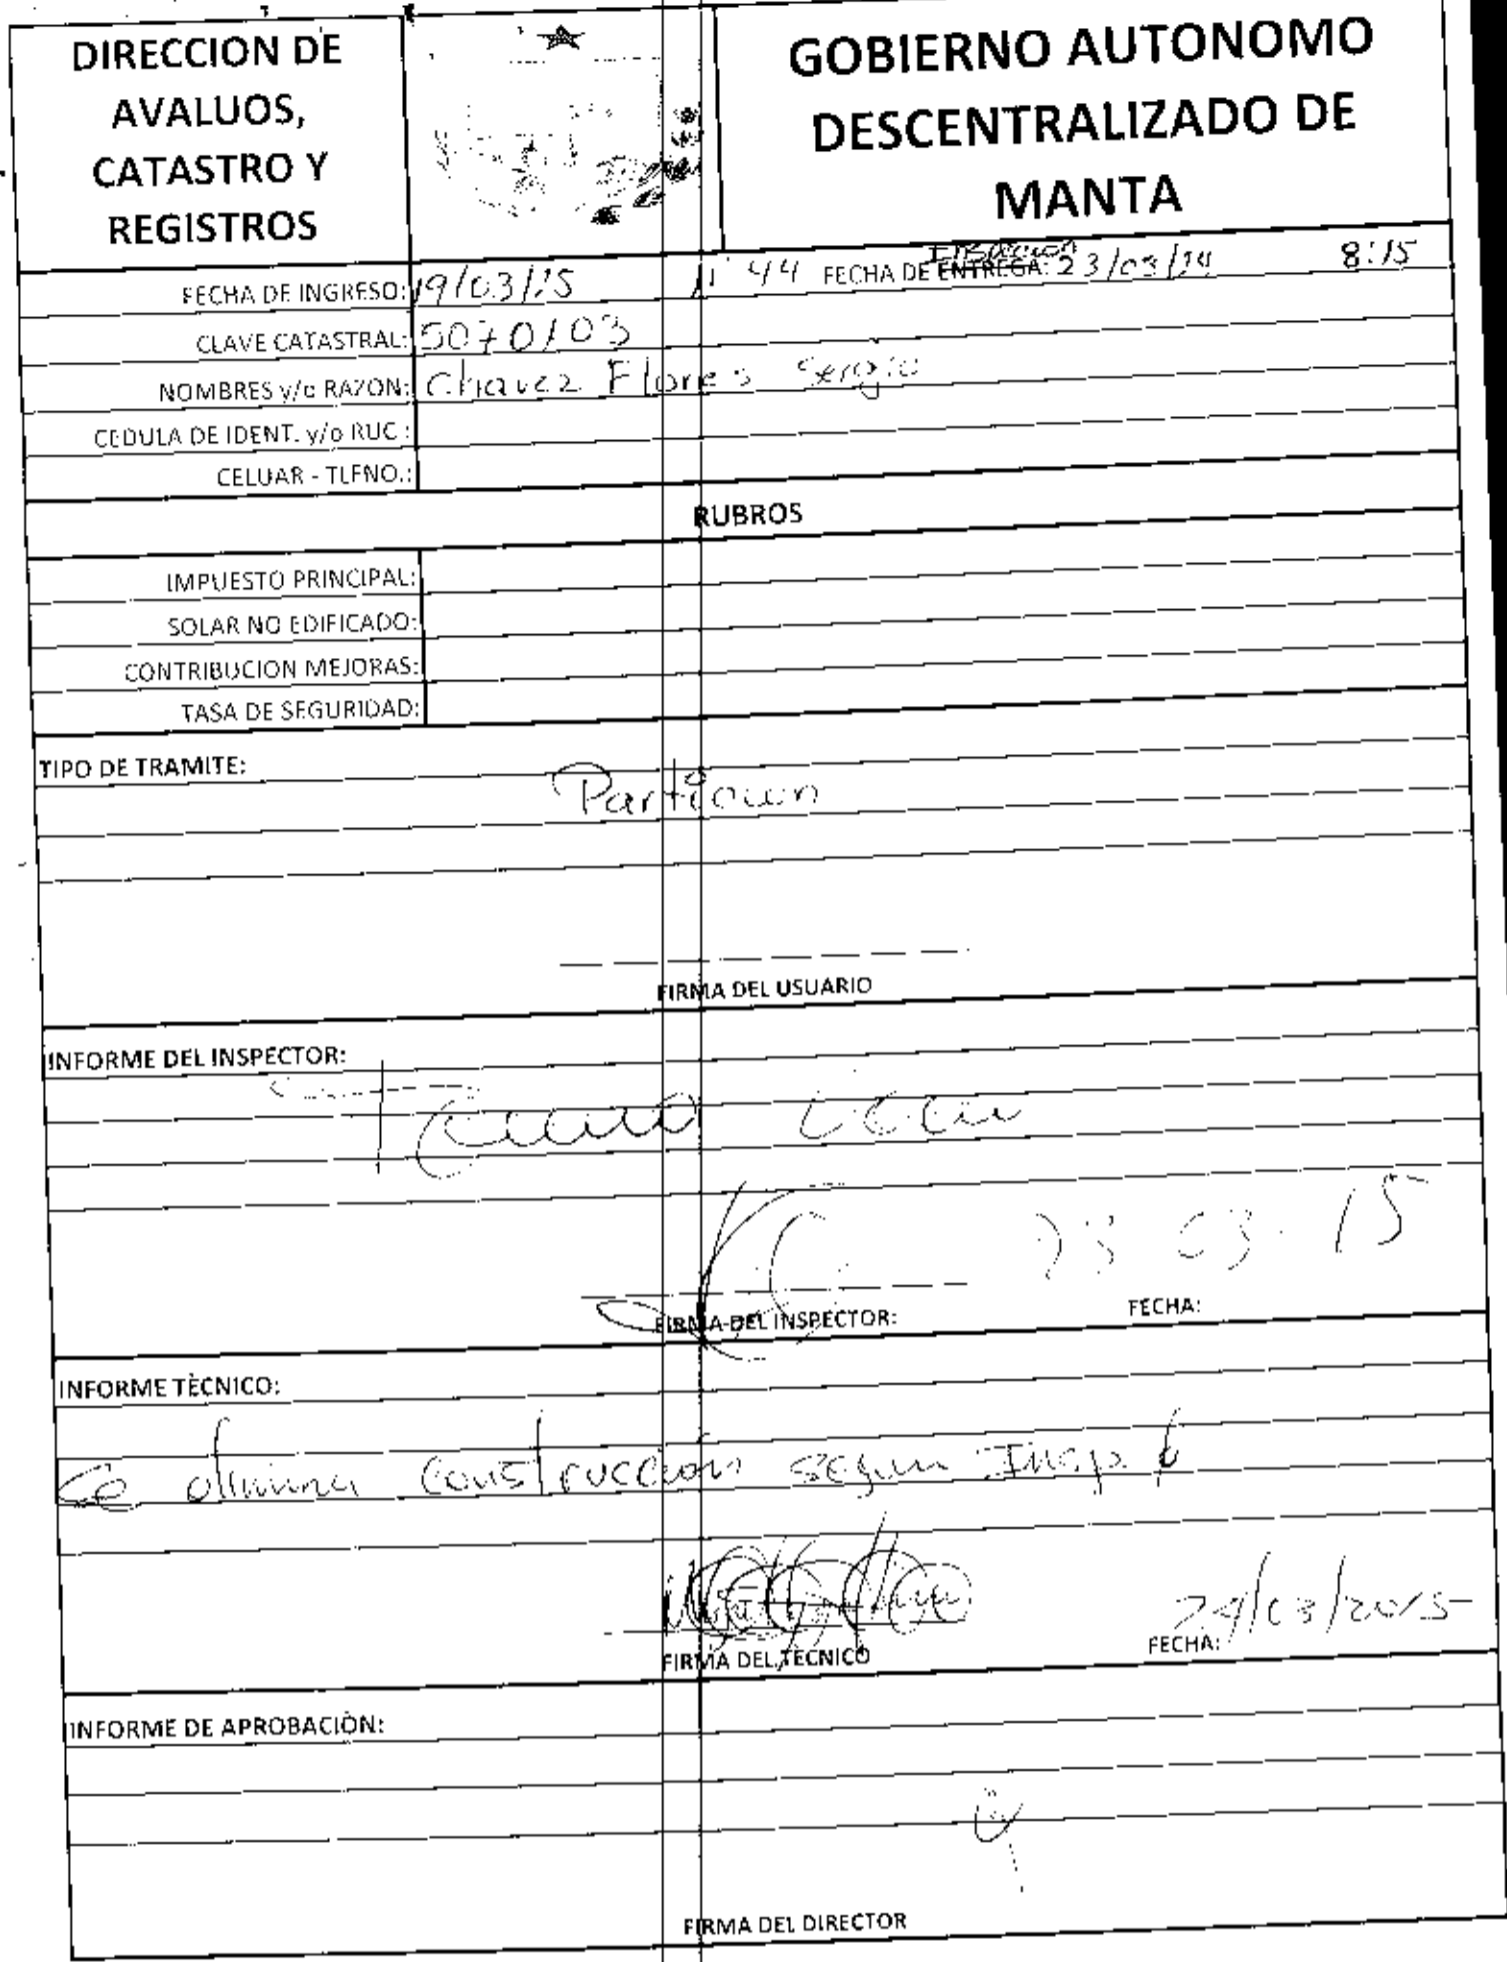 DIRECCION DE
AVALUOS,
CATASTRO Y
REGISTROS
GOBIERNO AUTONOMO
DESCENTRALIZADO DE
MANTA
FECHA DE INGRESO: 19/03/15 11:44 FECHA DE ENTREGA: 23/03/14 8:15
CLAVE CATASTRAL: 5070103
NOMBRES y/o RAZON: Chavez Flores Sergio
CEDULA DE IDENT. y/o RUC :
CELUAR - TLFNO.:
RUBROS
IMPUESTO PRINCIPAL:
SOLAR NO EDIFICADO:
CONTRIBUCION MEJORAS:
TASA DE SEGURIDAD:
TIPO DE TRAMITE:
Particion
FIRMA DEL USUARIO
INFORME DEL INSPECTOR:
23 03 15
FIRMA DEL INSPECTOR: FECHA:
INFORME TÈCNICO:
Se elimina Construcción según Insp.
24/03/2015
FIRMA DEL TECNICO FECHA:
INFORME DE APROBACIÒN:
FIRMA DEL DIRECTOR